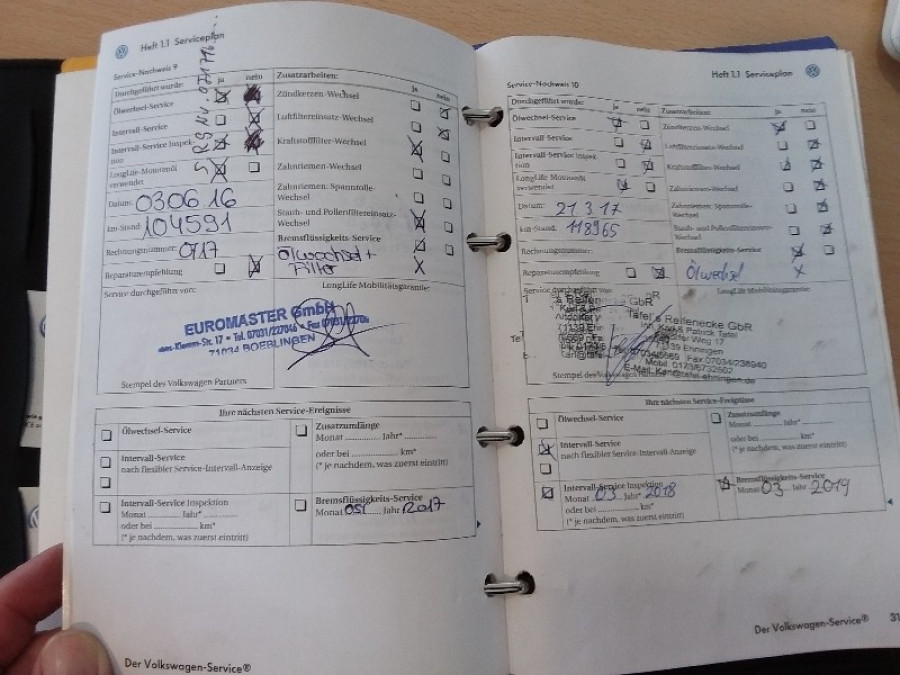 Heft 1.1 Serviceplan
Service-Nachweis 9
Durchgeführt wurde: ja nein
Ölwechsel-Service
Intervall-Service
Intervall-Service Inspek-
tion
LongLife-Motorenöl
verwendet
Datum: 03 06 16
km-Stand: 104591
Rechnungsnummer: 0717
Reparaturempfehlung
Zusatzarbeiten: ja nein
Zündkerzen-Wechsel
Luftfiltereinsatz-Wechsel
Kraftstofffilter-Wechsel
Zahnriemen-Wechsel
Zahnriemen, Spannrolle-
Wechsel
Staub- und Pollenfiltereinsatz-
Wechsel
Bremsflüssigkeits-Service
Ölwechsel +
Filter X
Service durchgeführt von:
LongLife Mobilitätsgarantie:
EUROMASTER GmbH
-Klemm-Str. 17 • Tel. 07031/227046 • Fax
71034 BOEBLINGEN
Stempel des Volkswagen Partners
Ihre nächsten Service-Ereignisse
Ölwechsel-Service
Intervall-Service
nach flexibler Service-Intervall-Anzeige
Intervall-Service Inspektion
Monat Jahr*
oder bei km*
(* je nachdem, was zuerst eintritt)
Zusatzumfänge
Monat Jahr*
oder bei km*
(* je nachdem, was zuerst eintritt)
Bremsflüssigkeits-Service
Monat 05 Jahr 2017
Der Volkswagen-Service®
Heft 1.1 Serviceplan
Service-Nachweis 10
Durchgeführt wurde: ja nein
Ölwechsel-Service
Intervall-Service
Intervall-Service Inspek-
tion
LongLife Motorenöl
verwendet
Datum: 21.3.17
km-Stand: 118965
Rechnungsnummer:
Reparaturempfehlung
Zusatzarbeiten: ja nein
Zündkerzen-Wechsel
Luftfiltereinsatz-Wechsel
Kraftstofffilter-Wechsel
Zahnriemen-Wechsel
Zahnriemen, Spannrolle-
Wechsel
Staub- und Pollenfiltereinsatz-
Wechsel
Bremsflüssigkeits-Service
Ölwechsel X
Service durchgeführt von:
LongLife Mobilitätsgarantie:
Tafel's Reifenecke GbR
Inh. Karl & Patrick Tafel
Weg 17
71139 Ehningen
Fax:07034/238940
Mobil. 0173/6732502
E-Mail: Karl@tafel-ehningen.de
Stempel des Volkswagen
Ihre nächsten Service-Ereignisse
Ölwechsel-Service
Intervall-Service
nach flexibler Service-Intervall-Anzeige
Intervall-Service Inspektion
Monat 03 Jahr* 2018
oder bei km*
(* je nachdem, was zuerst eintritt)
Zusatzumfänge
Monat Jahr*
oder bei km*
(* je nachdem, was zuerst eintritt)
Bremsflüssigkeits-Service
Monat 03 Jahr 2019
Der Volkswagen-Service®
31